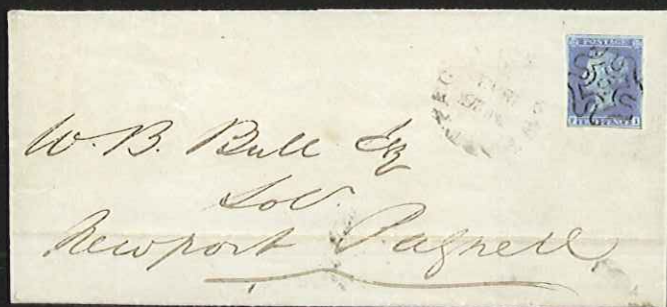 POSTAGE
W. B. Bull Esq
Sol.
Newport Pagnell